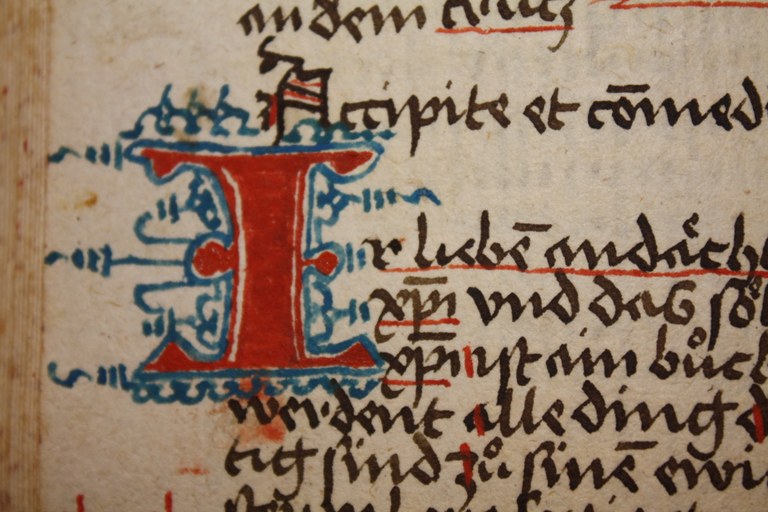 an dem
Accipite et com̄ed
Ir liebē andächt
xp̄i vnd das
xp̄i ist ain bůch
werdent alle ding
tig sind zů sinē ewi